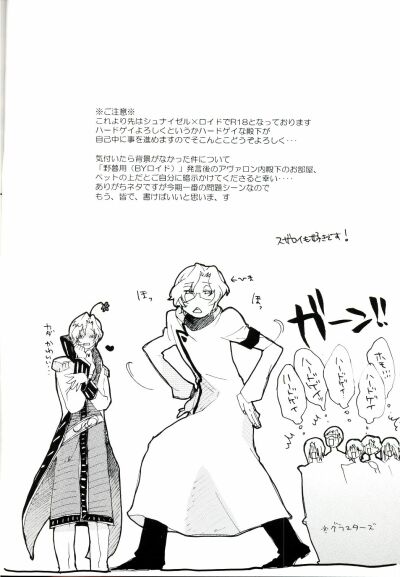 ※ご注意※
これより先はシュナイゼル×ロイドでR18となっております
ハードゲイよろしくというかハードゲイな殿下が
自己中に事を進めますのでそこんとこどうぞよろしく・・・
気付いたら背景がなかった件について
「野暮用（BYロイド）」発言後のアヴァロン内殿下のお部屋、
ベットの上だとご自分に暗示かけてくださると幸い・・・・
ありがちネタですが今期一番の問題シーンなので
もう、皆で、書けばいいと思いま、す
スザロイも好きです！
ほっ
ほっ
ガーン!!
ホモ…
ハードゲイ
ハードゲイ
ハードゲイ